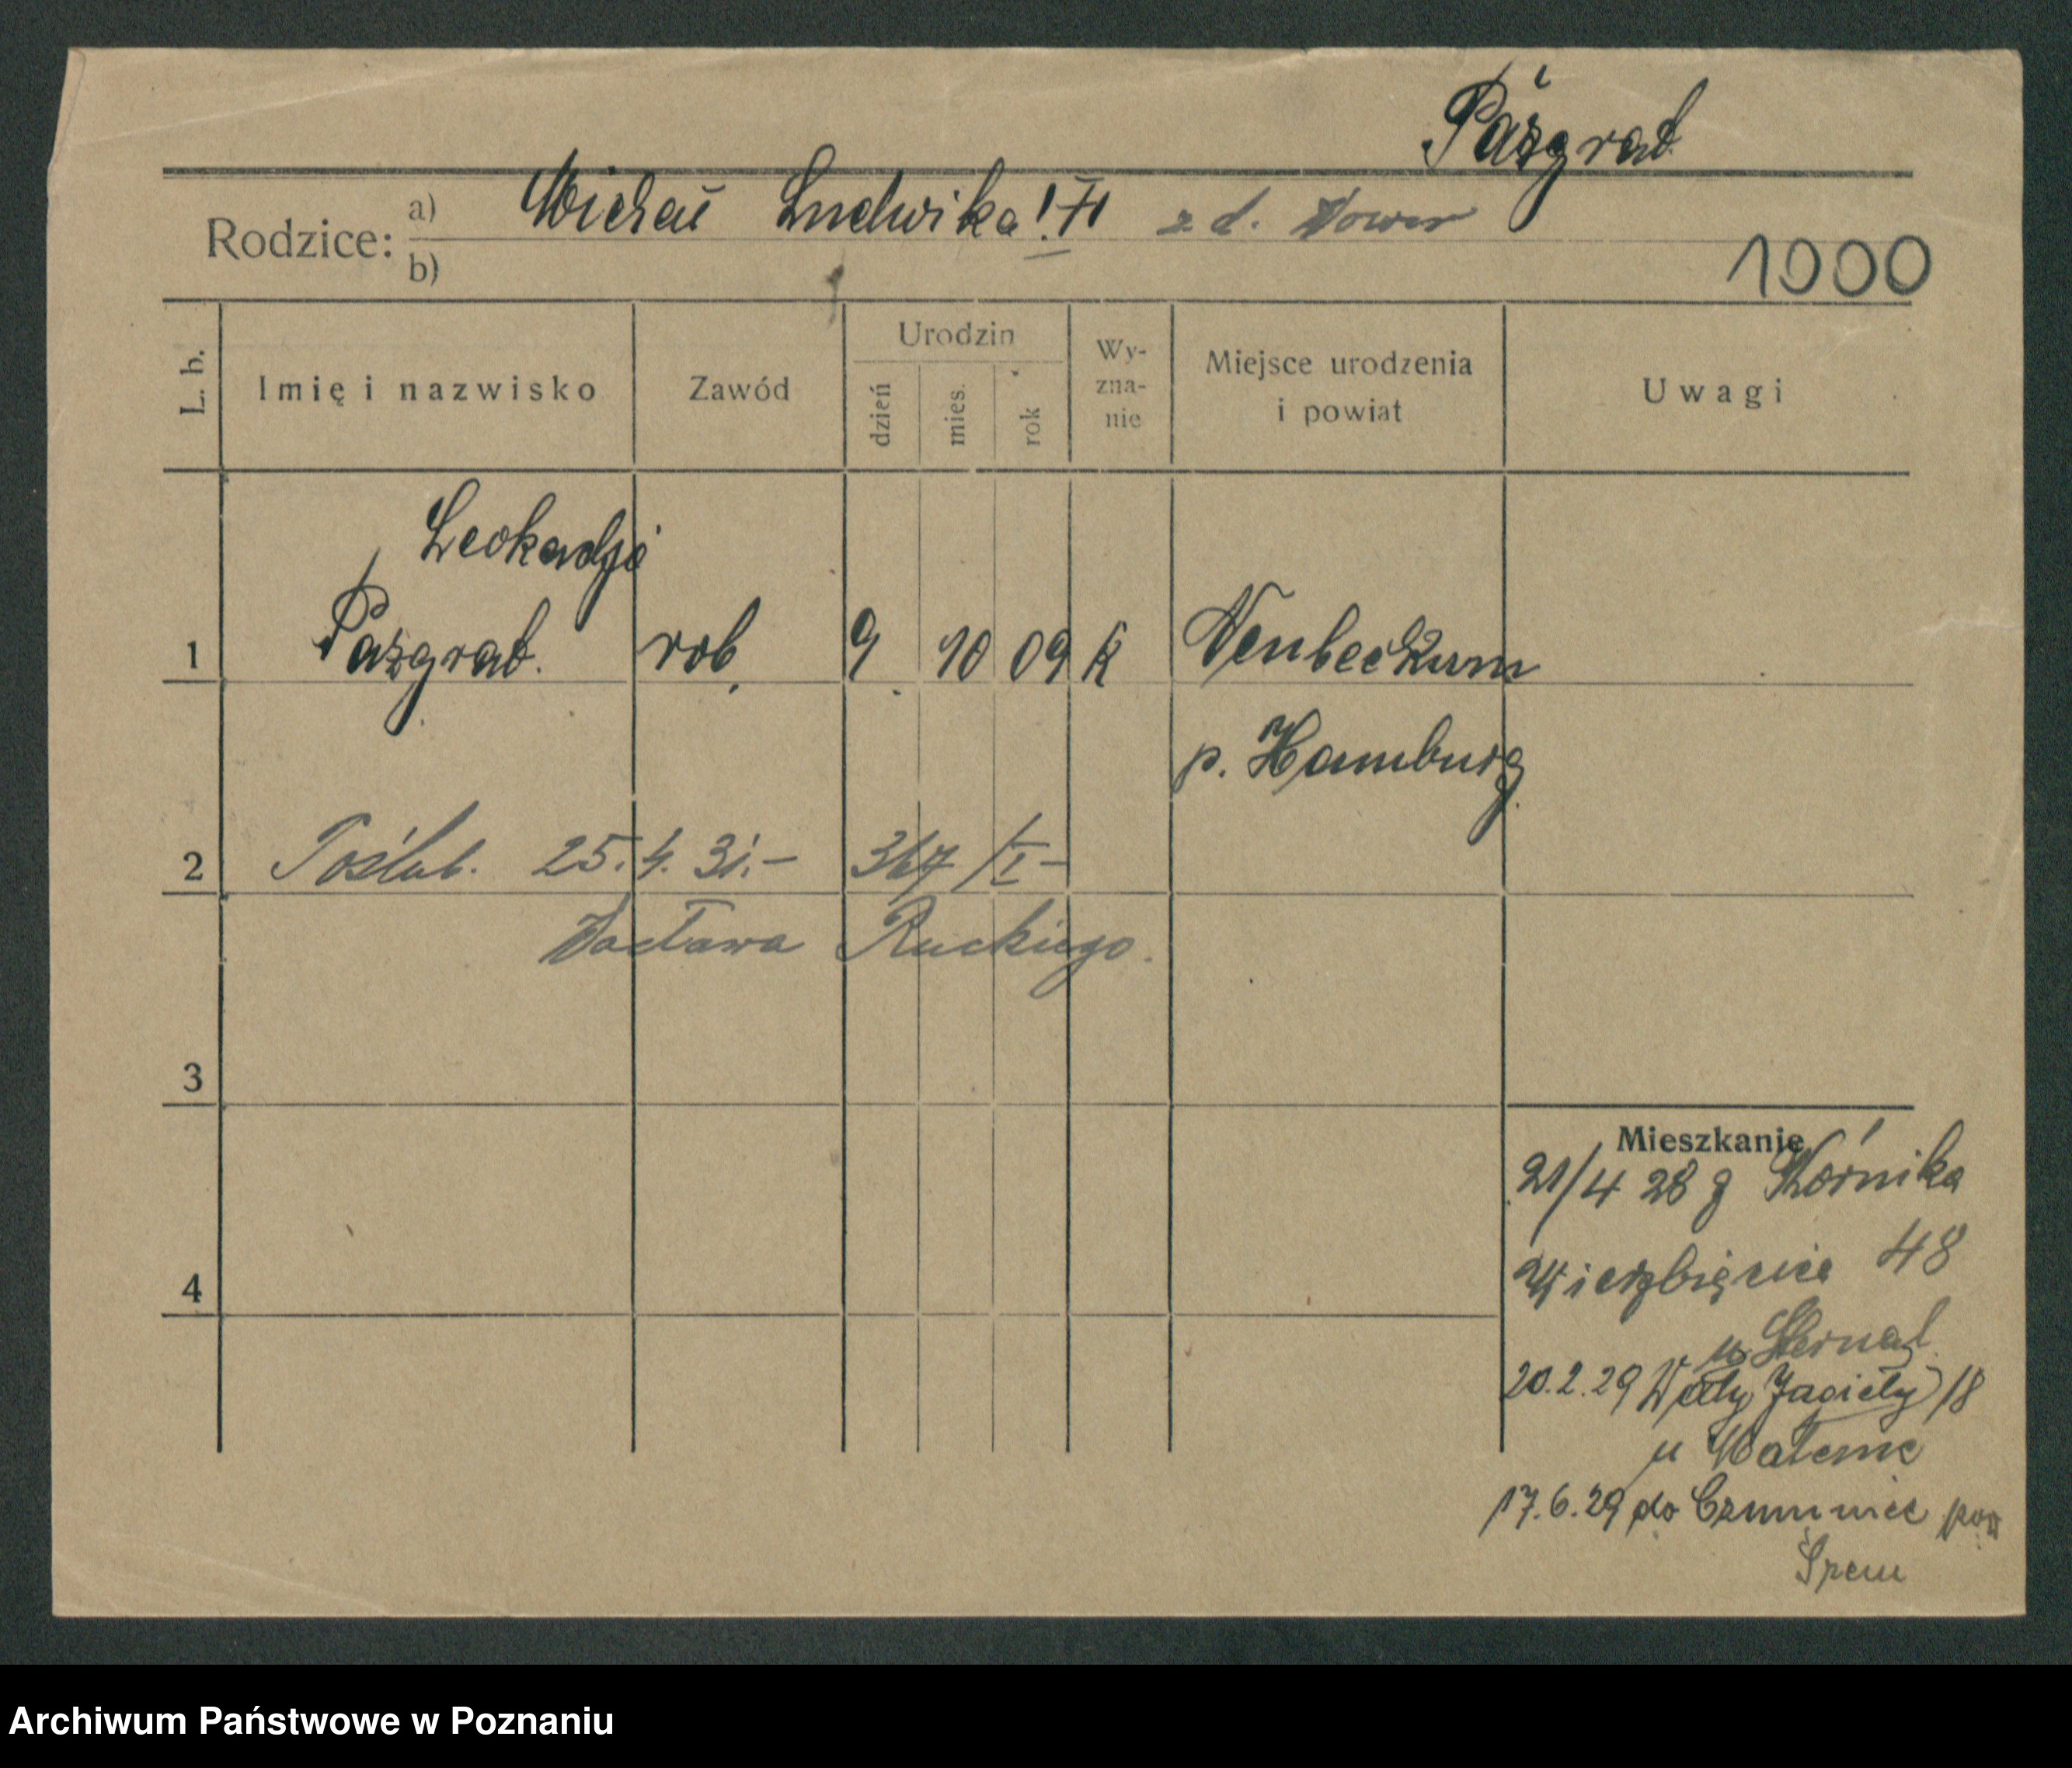 Pażgrat
Rodzice: a) Michał Ludwika z d.
b)
1000
L. b.
Imię i nazwisko
Zawód
Urodzin
dzień
mies.
rok
Wy-
zna-
nie
Miejsce urodzenia
i powiat
Uwagi
Leokadja
1 Pazgrat. rob. 9 10 09 k Neubeckum
p. Hamburg
2 Poślub. 25.4.31.- 367/I-
Wacława Ruckiego.
3
4
Mieszkanie
21/4 28 z Kórnika
Wierzbięcice 48
u
20.2.29 Wały Jagiełły 18
u
17.6.29 do pow
Śrem
Archiwum Państwowe w Poznaniu